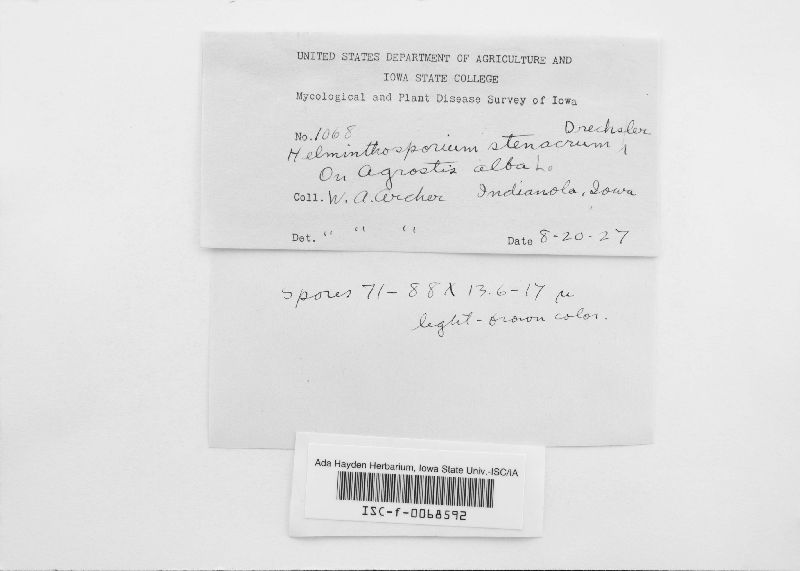 UNITED STATES DEPARTMENT OF AGRICULTURE AND
IOWA STATE COLLEGE
Mycological and Plant Disease Survey of Iowa
No. 1068 Drechsler
Helminthosporium stenacrum
On Agrostis alba L.
Coll. W. A. Archer Indianola, Iowa
Det. " " " Date 8-20-27
Spores 71-88 X 13.6-17 µ
light-brown color.
Ada Hayden Herbarium, Iowa State Univ.-ISC/IA
ISC-f-0068592